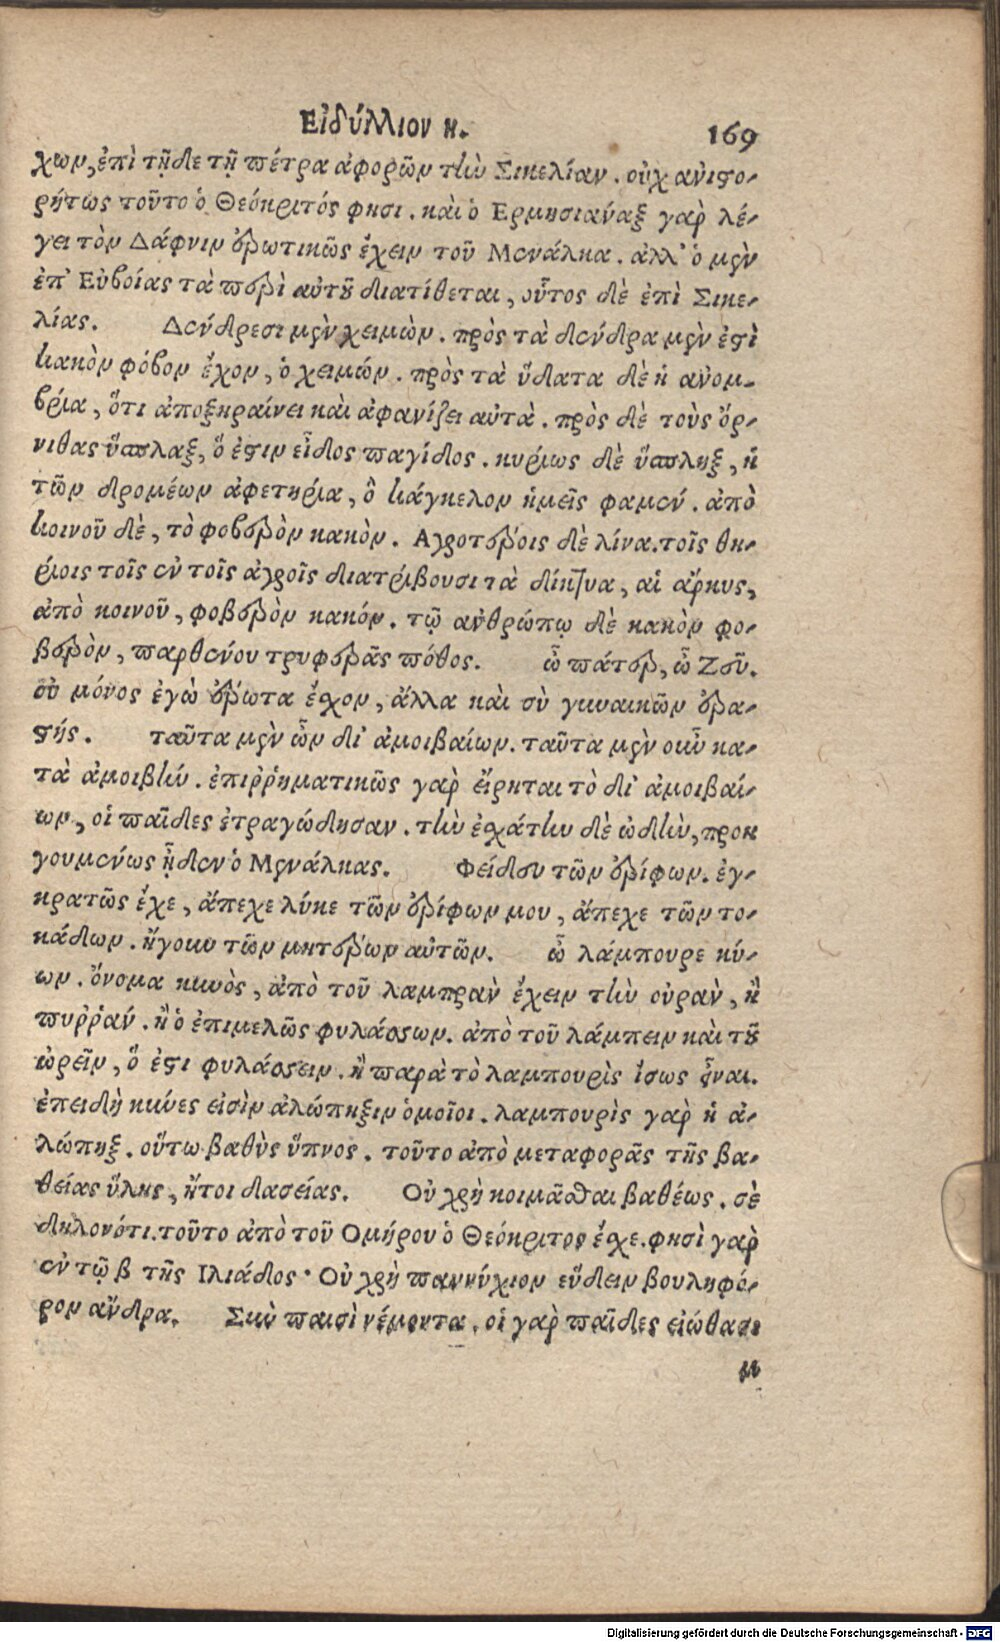 Εἰδύλλιον η.
169
χων, ἐπὶ τῇδε τῇ πέτρα ἀφορῶν τὴν Σικελίαν. οὐχ ἀνιστο-
ρήτως τοῦτο ὁ Θεόκριτός φησι. καὶ ὁ Ερμησιάναξ γὰρ λέ-
γει τὸν Δάφνιν ἐρωτικῶς ἔχειν τοῦ Μενάλκα. ἀλλ' ὁ μὲν
ἐπ' Εὐβοίας τὰ περὶ αὐτοῦ διατίθεται, οὗτος δὲ ἐπὶ Σικε-
λίας. Δένδρεσι μὲν χειμὼν. πρὸς τὰ δένδρα μὲν ἐστὶ
κακὸν φόβον ἔχον, ὁ χειμών. πρὸς τὰ ὕδατα δὲ ἡ ἀνομ-
βρία, ὅτι ἀποξηραίνει καὶ ἀφανίζει αὐτὰ. πρὸς δὲ τοὺς ὄρ-
νιθας ὕσπλαξ, ὅ ἐστιν εἶδος παγίδος. κυρίως δὲ ὕσπληξ, ἡ
τῶν δρομέων ἀφετηρία, ὃ κάγκελον ἡμεῖς φαμέν. ἀπὸ
κοινοῦ δὲ, τὸ φοβερὸν κακὸν. Αγροτέροις δὲ λίνα. τοῖς θη-
ρίοις τοῖς ἐν τοῖς ἀγροῖς διατρίβουσι τὰ δίκτυα, αἱ ἄρκυς,
ἀπὸ κοινοῦ, φοβερὸν κακόν. τῷ ἀνθρώπῳ δὲ κακὸν φο-
βερὸν, παρθένου τρυφερᾶς πόθος. ὦ πάτερ, ὦ Ζεῦ.
οὐ μόνος ἐγὼ ἔρωτα ἔχον, ἄλλα καὶ σὺ γυναικῶν ἐρα-
στής. ταῦτα μὲν ὦν δι' ἀμοιβαίων. ταῦτα μὲν οὖν κα-
τὰ ἀμοιβὴν. ἐπιῤῥηματικῶς γὰρ εἴρηται τὸ δι' ἀμοιβαί-
ων, οἱ παῖδες ἐτραγώδησαν. τὴν ἐχάτην δὲ ὠδὴν, προη
γουμένως ᾖδεν ὁ Μενάλκας. Φείδευ τῶν ἐρίφων. ἐγ-
κρατῶς ἔχε, ἄπεχε λύκε τῶν ἐρίφων μου, ἄπεχε τῶν το-
κάδων. ἤγουν τῶν μητέρων αὐτῶν. ὦ λάμπουρε κύ-
ων. ὄνομα κυνὸς, ἀπὸ τοῦ λαμπρὰν ἔχειν τὴν οὐρὰν, ἢ
πυῤῥάν. ἢ ὁ ἐπιμελῶς φυλάσσων. ἀπὸ τοῦ λάμπειν καὶ τοῦ
ὠρεῖν, ὅ ἐστι φυλάσσειν. ἢ παρὰ τὸ λαμπουρὶς ἴσως εἶναι.
ἐπειδὴ κύνες εἰσὶν ἀλώπηξιν ὁμοῖοι. λαμπουρὶς γὰρ ἡ ἀ-
λώπηξ. οὕτω βαθὺς ὕπνος. τοῦτο ἀπὸ μεταφορᾶς τῆς βα-
θείας ὕλης, ἤτοι δασείας. Οὐ χρὴ κοιμᾶσθαι βαθέως. σὲ
δηλονότι. τοῦτο ἀπὸ τοῦ Ομήρου ὁ Θεόκριτος ἔσχε. φησὶ γὰρ
ἐν τῷ β τῆς Ιλιάδος· Οὐ χρὴ παννύχιον εὕδειν βουληφό-
ρον ἄνδρα. Σὺν παισὶ νέμοντα. οἱ γὰρ παῖδες εἰώθασι
M
Digitalisierung gefördert durch die Deutsche Forschungsgemeinschaft - DFG